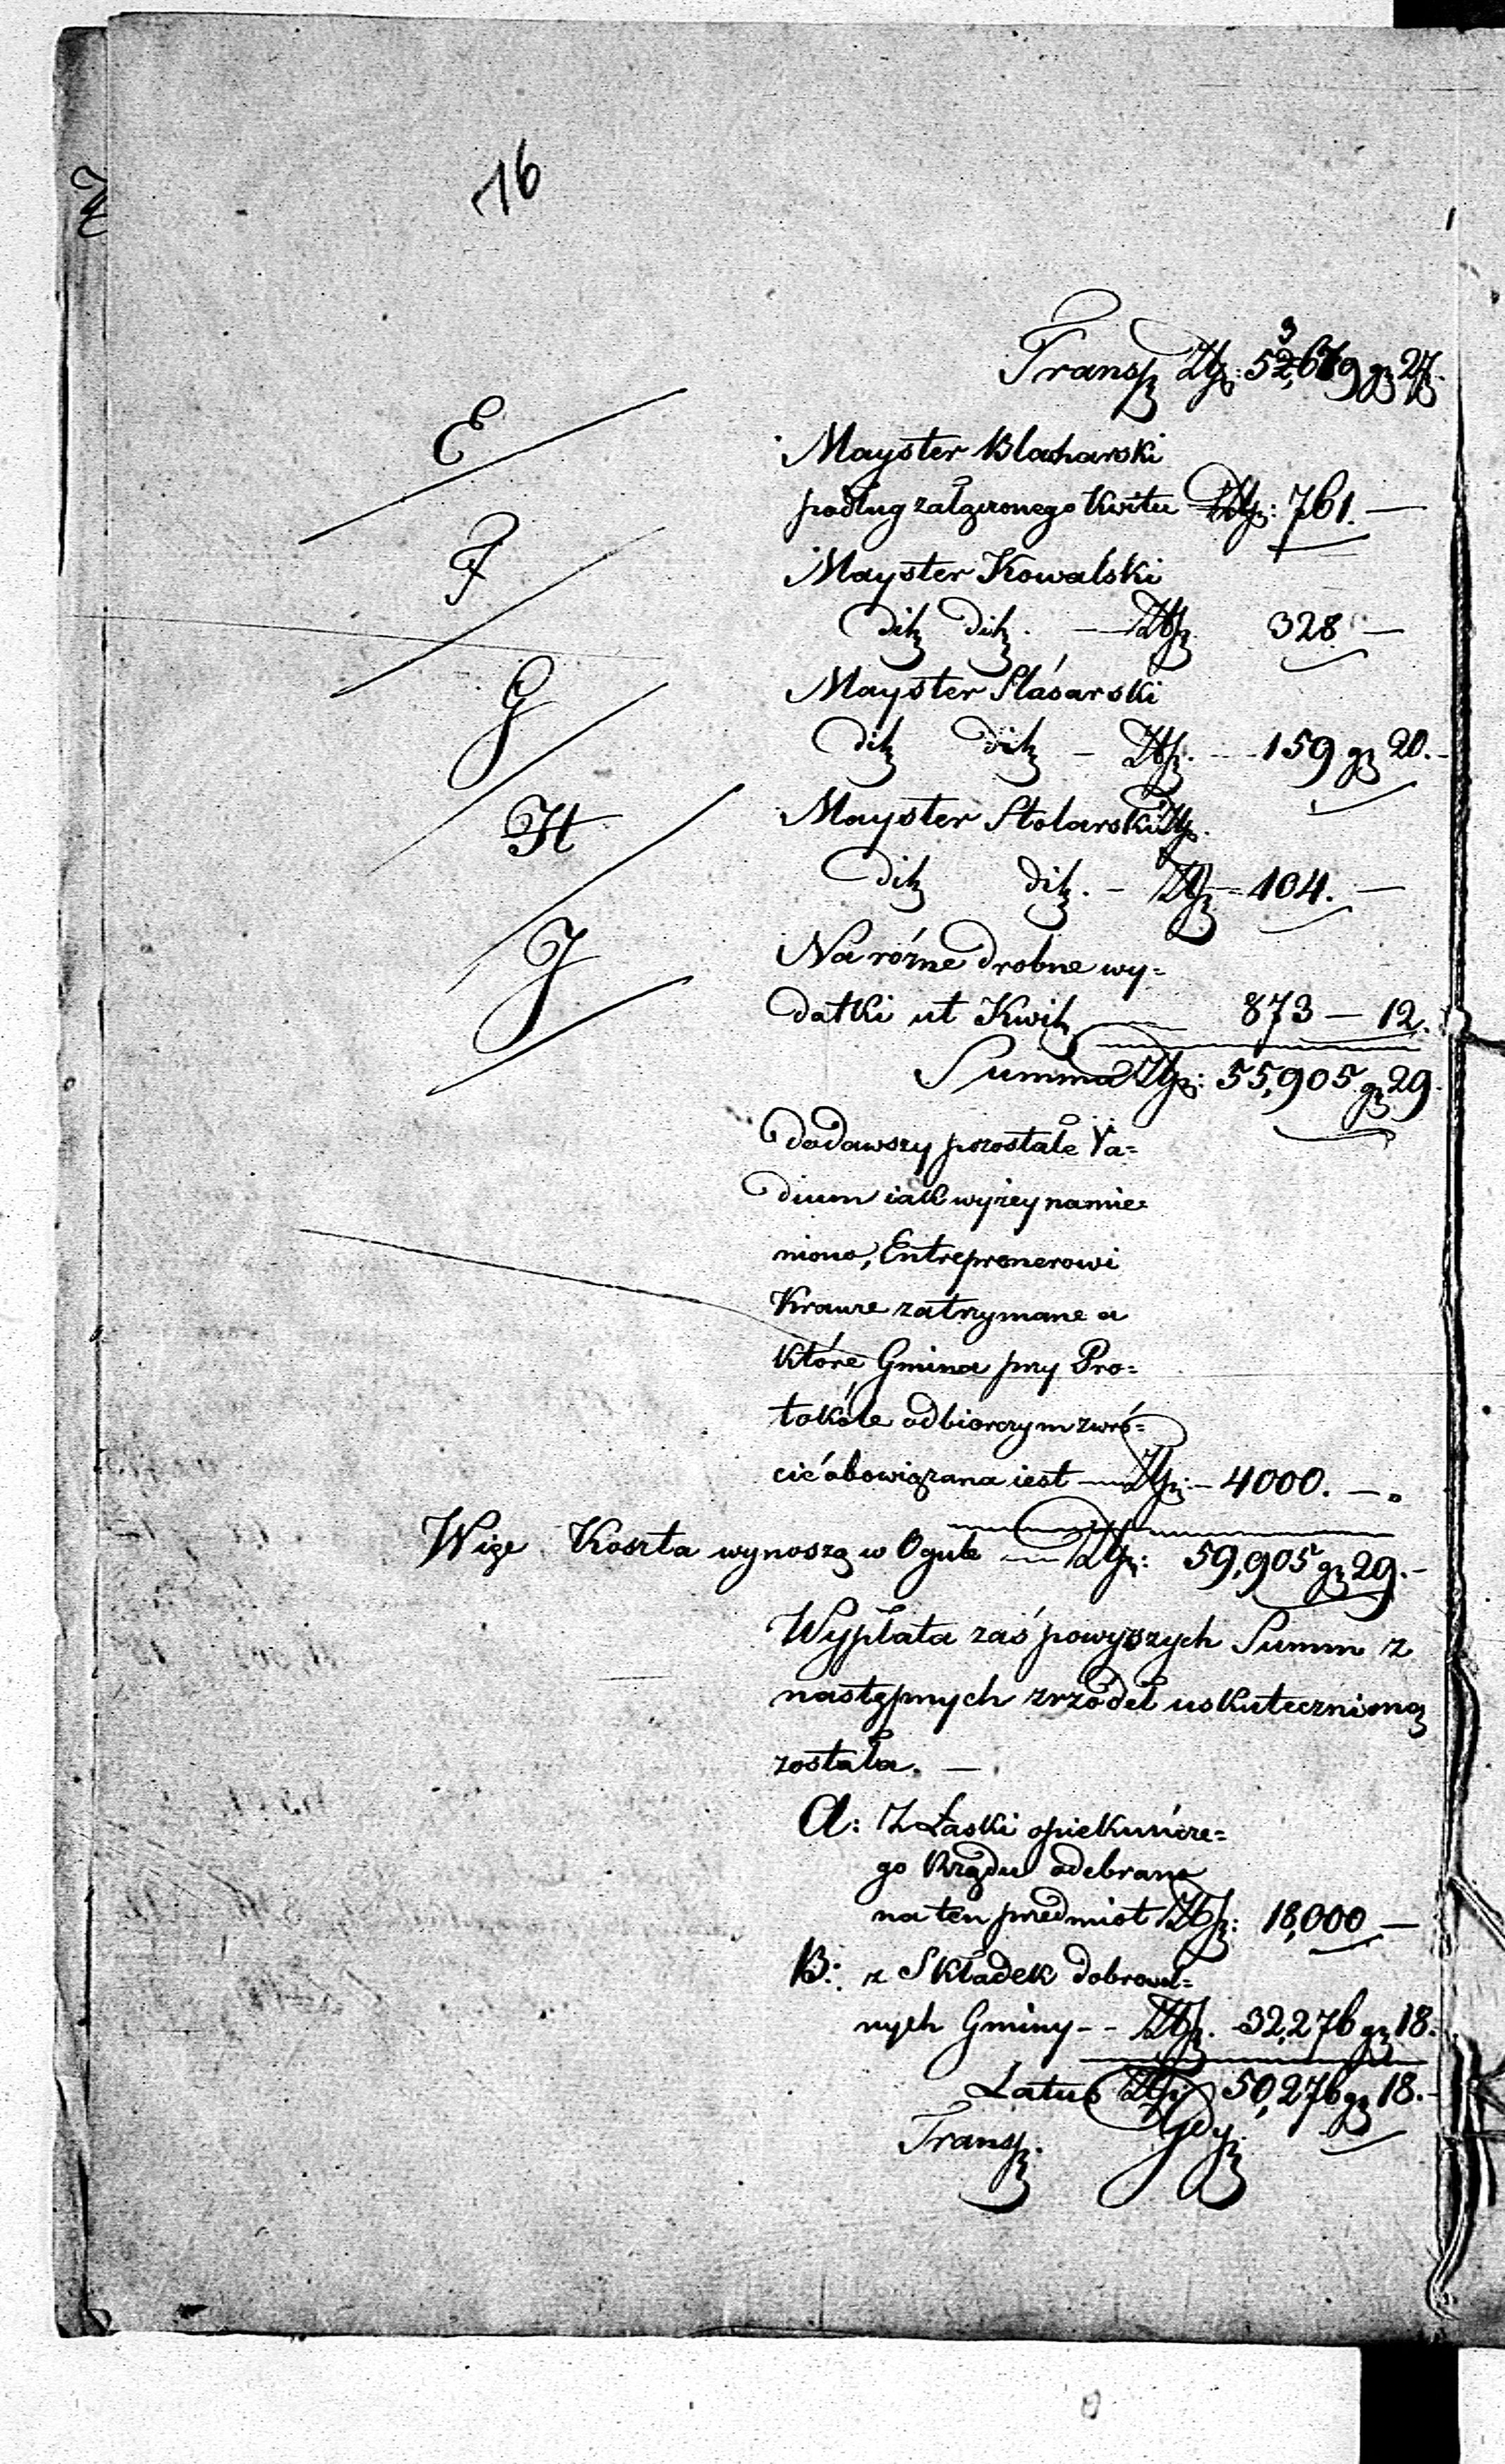 16
Transp Złp: 53,679 gr 27.
E Mayster Blacharski
podług załączonego Kwitu Złp: 761. —
F Mayster Kowalski
dito dito. — Złp 328 —
G Mayster Slásarski
dito dito — Złp. — 159 gr 20. —
H Mayster Stolarski
dito dito. — Złp — 104. —
J Na różne drobne wy=
datki ut Kwit — 873 — 12.
Summa Złp: 55,905 gr 29.
dodawszy pozostałe Va=
dium iak wyżey namie=
niono, Entreprenerowi
Krauze zatrzymane a
które Gmina przy Pro=
tokóle odbiorczym zwró=
cić obowiązana iest — Złp: — 4000. —
Więc Koszta wynoszą w Ogule — Złp: 59,905 gr 29. —
Wypłata zaś powyższych Summ z
następnych zrzódeł uskutecznioną
została. —
A: Z Łaski opiekuńcze=
go Rządu odebrane
na ten predmiot Złp: 18,000 —
B: z Składek dobrowol=
nych Gminy — Złp. 32,276 gr 18.
Latus Złp 50,276 gr 18. —
Transp.